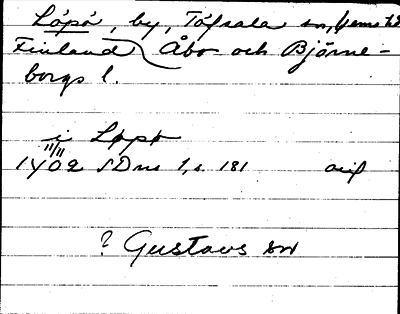 Löpö, by, Töfsala sn,
Finland Åbo och Björne-
borgs l.
i Löpö
11/11
1402 SDns 1, s. 181
? Gustavs sn